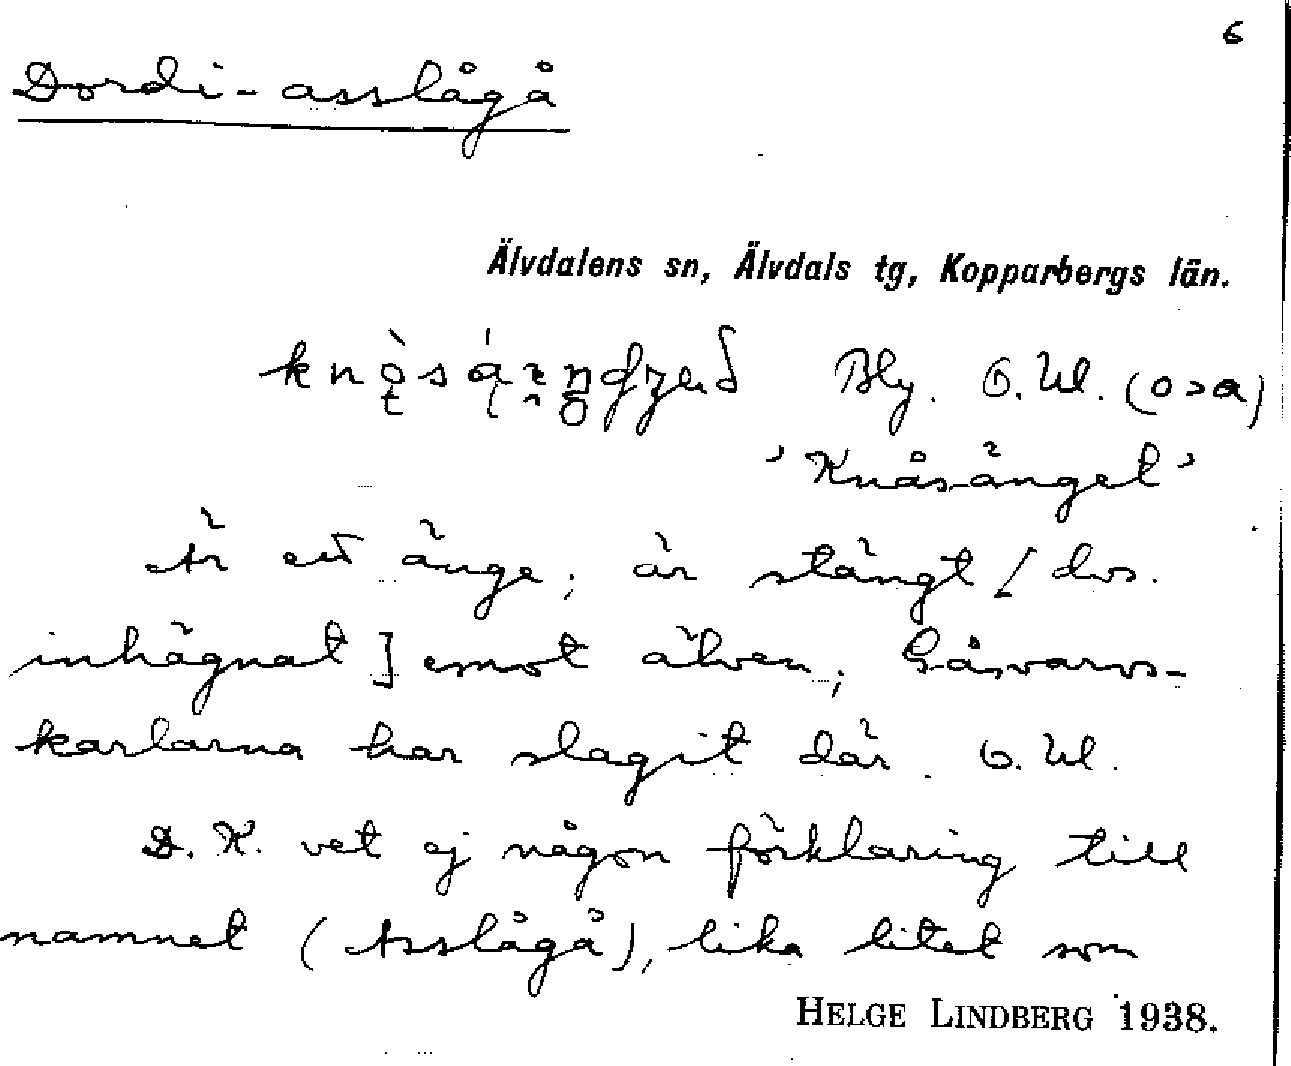 6
Dordi-asslågå
Älvdalens sn, Älvdals tg, Kopparbergs län.
Bly. O. Wl. (o>a)
'Knåsänget'
Är ett änge; är stängt [dvs.
inhägnat] emot älven; Gåsvarvs-
karlarna har slagit där. O. Wl.
D. K. vet ej någon förklaring till
namnet (Asslågå), lika litet som
HELGE LINDBERG 1938.